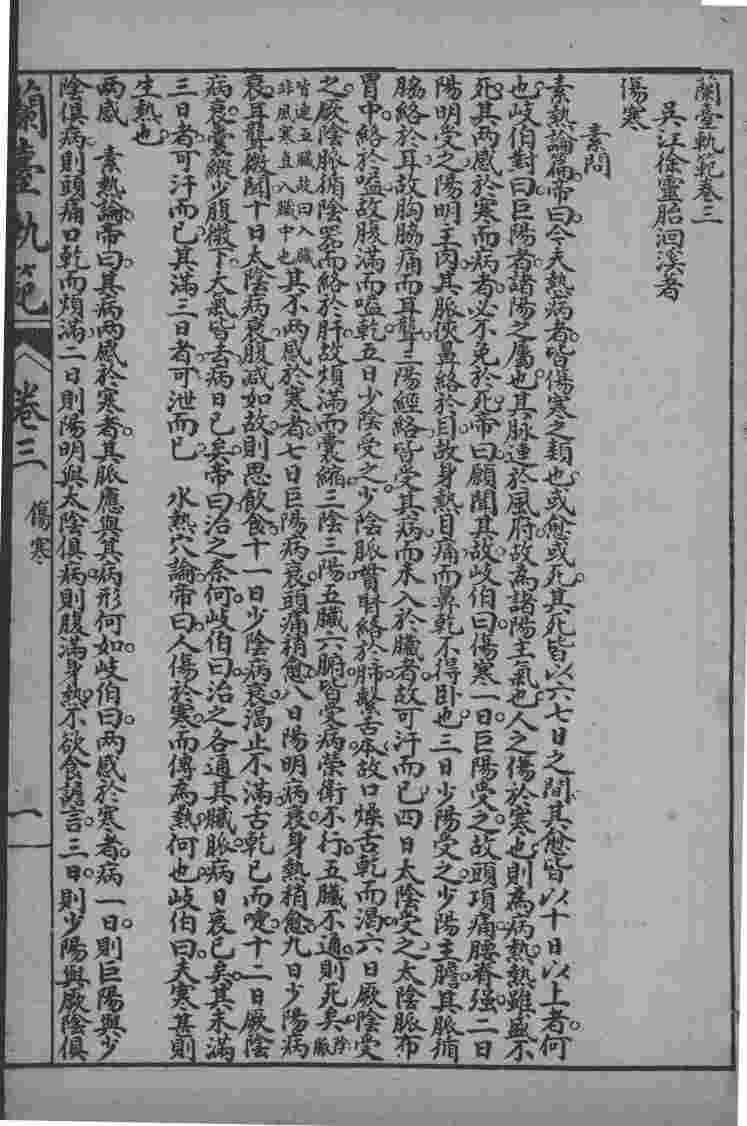 蘭臺軌範卷三
吳江徐靈胎洄溪著
傷寒
素問
素熱論篇帝曰今夫熱病者皆傷寒之類也或愈或死其死皆以六七日之間其愈皆以十日以上者何
也岐伯對曰巨陽者諸陽之屬也其脉連於風府故為諸陽主氣也人之傷於寒也則為病熱熱雖盛不
死其兩感於寒而病者必不免於死帝曰願聞其故岐伯曰傷寒一日巨陽受之故頭項痛腰脊强二日
陽明受之陽明主肉其脈俠鼻絡於目故身熱目痛而鼻乾不得卧也三日少陽受之少陽主膽其脈循
脇絡於耳故胸脇痛而耳聾三陽經絡皆受其病而未入於臟者故可汗而已四日太陰受之太陰脈布
胃中絡於嗌故腹滿而嗌乾五日少陰受之少陰脈貫腎絡於肺繫舌本故口燥舌乾而渴六日厥陰受
之厥陰脈循陰器而絡於肝故煩滿而囊縮三陰三陽五臟六腑皆受病榮衛不行五臟不通則死矣除脈
皆連五臟故曰入臟非風寒直入臟中也其不兩感於寒者七日巨陽病衰頭痛稍愈八日陽明病衰身熱稍愈九日少陽病
衰耳聾微聞十日太陰病衰腹減如故則思飲食十一日少陰病衰渴止不滿舌乾已而嚏十二日厥陰
病衰囊縱少腹微下大氣皆去病日已矣帝曰治之奈何岐伯曰治之各通其臟脈病日衰已矣其未滿
三日者可汗而已其滿三日者可泄而已 水熱穴論帝曰人傷於寒而傳為熱何也岐伯曰夫寒甚則
生熱也
兩感 素熱論帝曰其病兩感於寒者其脈應與其病形何如岐伯曰兩感於寒者病一日則巨陽與少
陰俱病則頭痛口乾而煩滿二日則陽明與太陰俱病則腹滿身熱不欲食譫言三日則少陽與厥陰俱
蘭臺軌範 卷三 傷寒 一